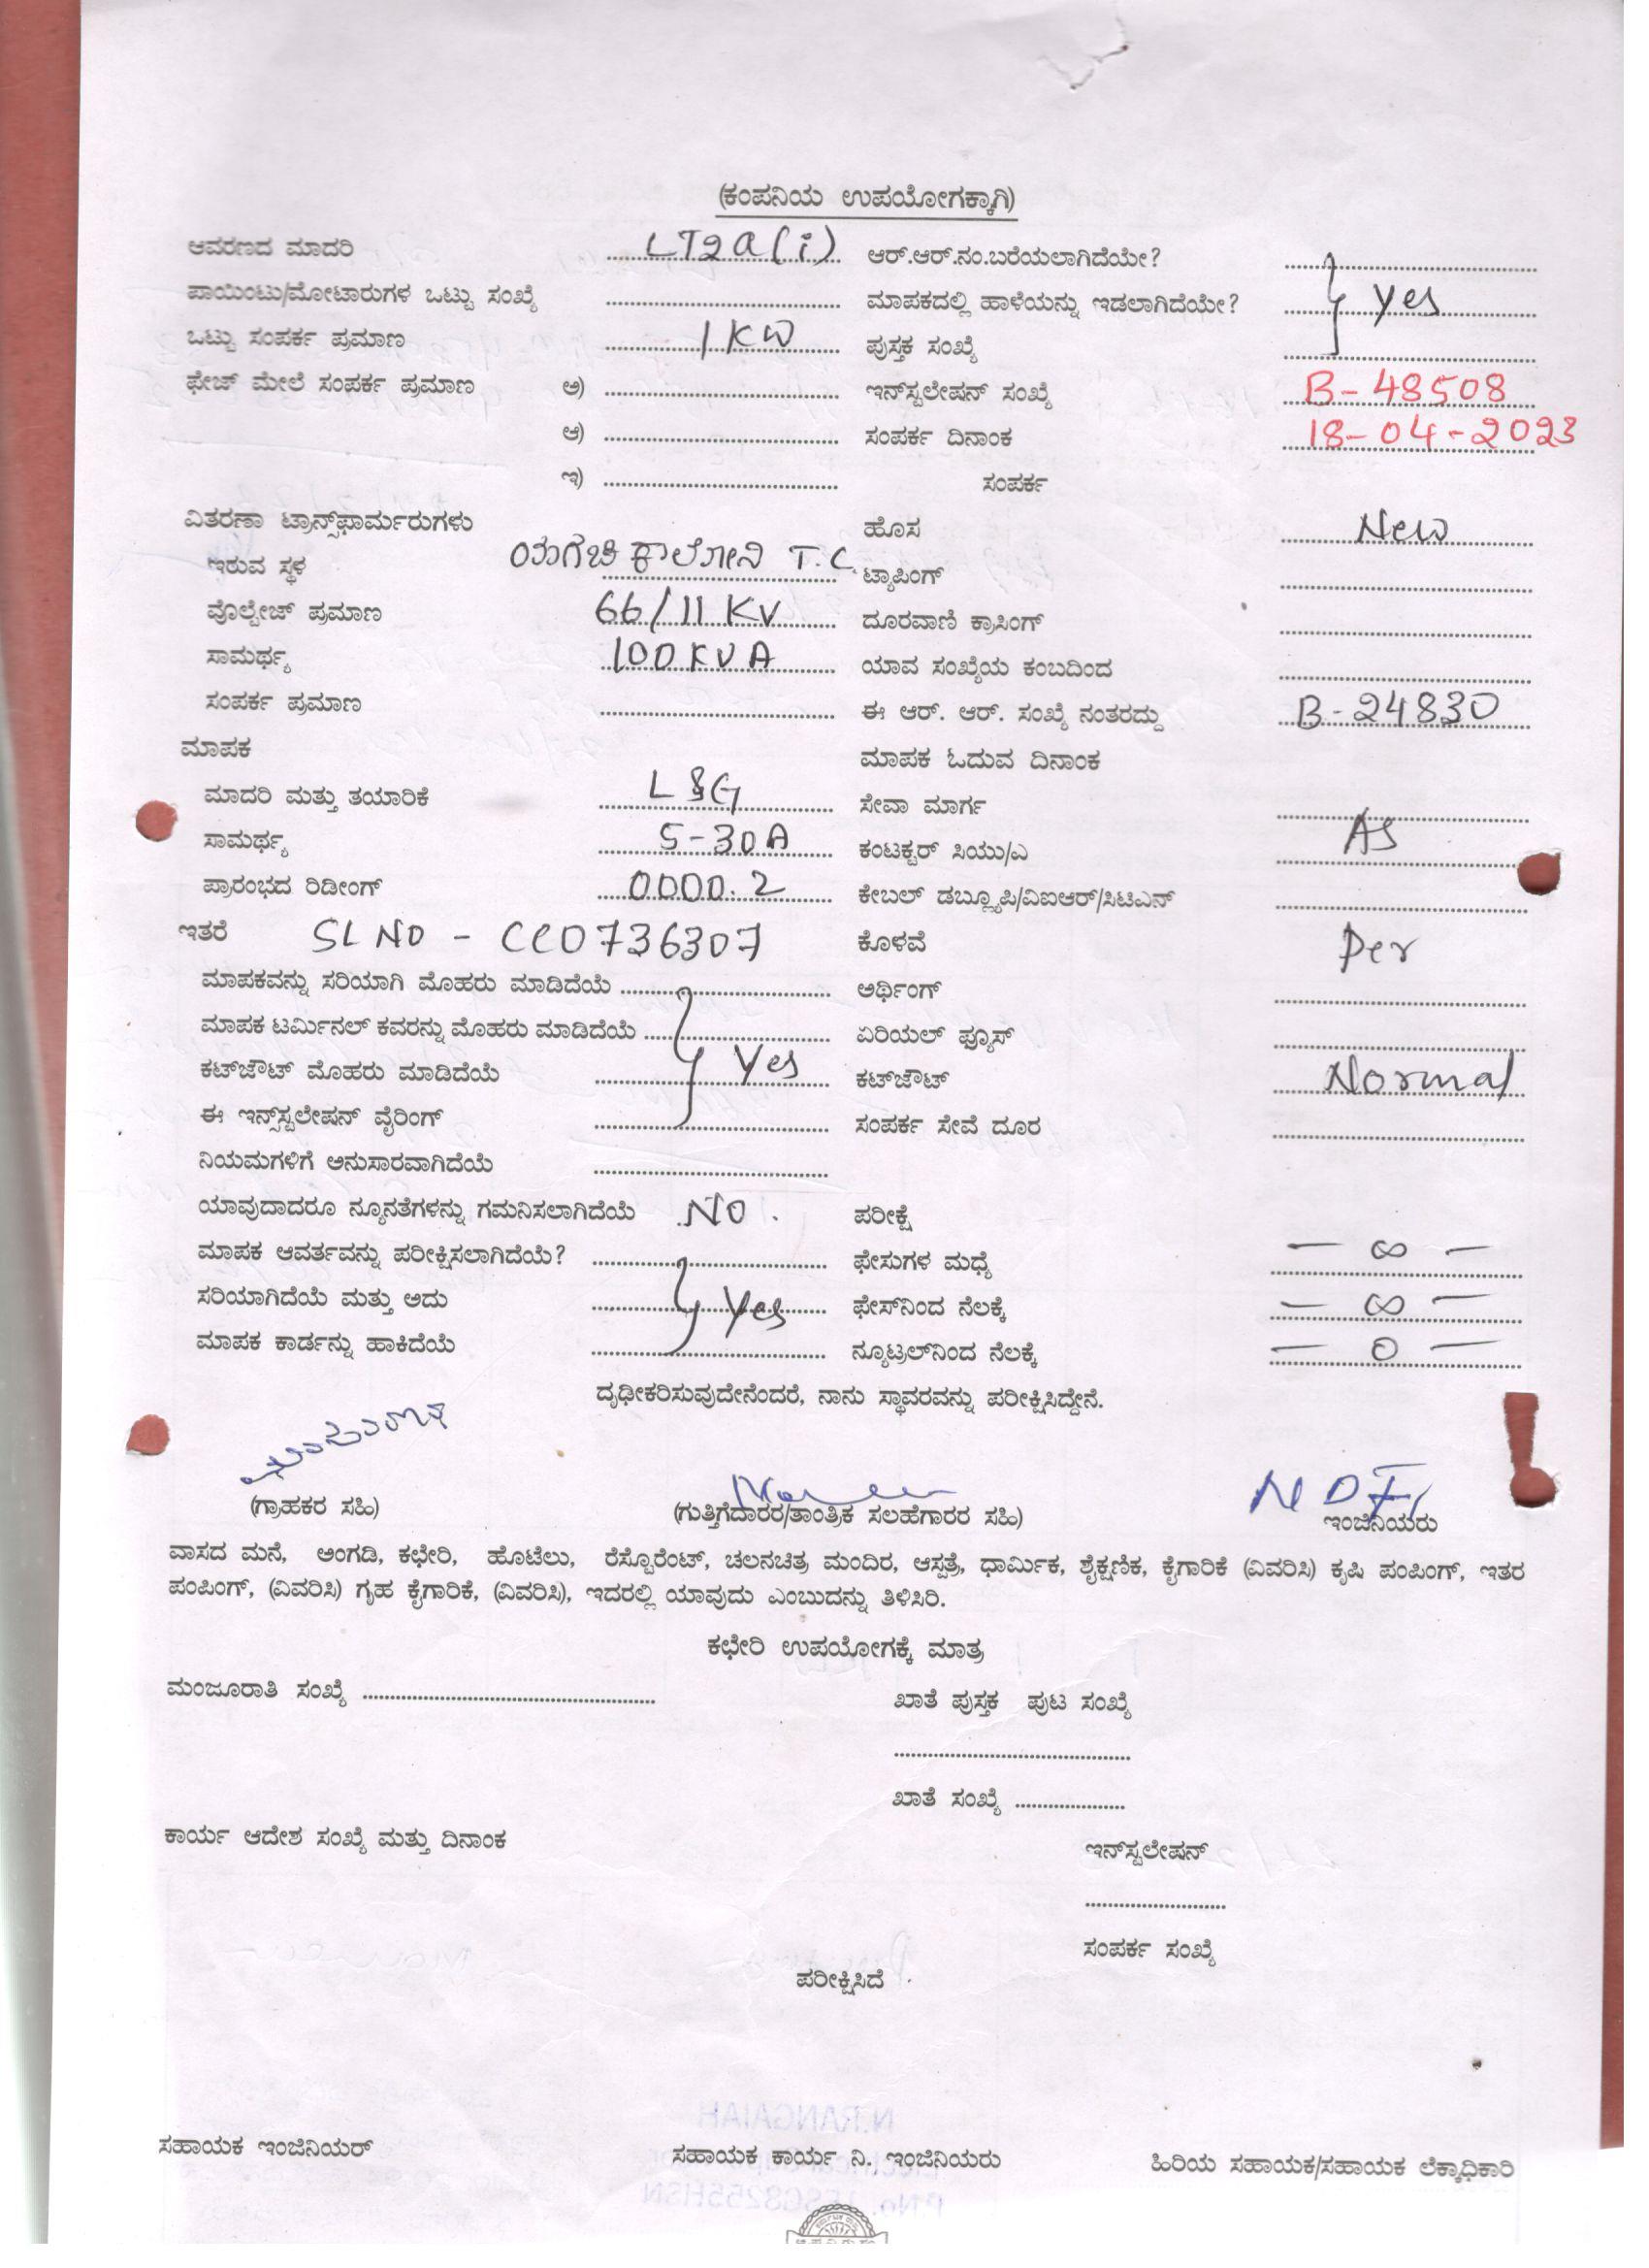 (ಕಂಪನಿಯ ಉಪಯೋಗಕ್ಕಾಗಿ)
ಆವರಣದ ಮಾದರಿ LT2a(i) ಆರ್.ಆರ್.ನಂ.ಬರೆಯಲಾಗಿದೆಯೇ?
ಪಾಯಿಂಟು/ಮೋಟಾರುಗಳ ಒಟ್ಟು ಸಂಖ್ಯೆ ಮಾಪಕದಲ್ಲಿ ಹಾಳೆಯನ್ನು ಇಡಲಾಗಿದೆಯೇ? } Yes
ಒಟ್ಟು ಸಂಪರ್ಕ ಪ್ರಮಾಣ 1KW ಪುಸ್ತಕ ಸಂಖ್ಯೆ
ಫೇಜ್ ಮೇಲೆ ಸಂಪರ್ಕ ಪ್ರಮಾಣ ಅ) ಇನ್‌ಸ್ಟಲೇಷನ್ ಸಂಖ್ಯೆ B-48508
ಆ) ಸಂಪರ್ಕ ದಿನಾಂಕ 18-04-2023
ಇ) ಸಂಪರ್ಕ
ವಿತರಣಾ ಟ್ರಾನ್ಸ್‌ಫಾರ್ಮರುಗಳು ಹೊಸ New
ಇರುವ ಸ್ಥಳ ಯಗಚಿ ಕಾಲೋನಿ T.C. ಟ್ಯಾಪಿಂಗ್
ವೊಲ್ಟೇಜ್ ಪ್ರಮಾಣ 66/11 KV ದೂರವಾಣಿ ಕ್ರಾಸಿಂಗ್
ಸಾಮರ್ಥ್ಯ 100KVA ಯಾವ ಸಂಖ್ಯೆಯ ಕಂಬದಿಂದ
ಸಂಪರ್ಕ ಪ್ರಮಾಣ ಈ ಆರ್. ಆರ್. ಸಂಖ್ಯೆ ನಂತರದ್ದು B-24830
ಮಾಪಕ ಮಾಪಕ ಓದುವ ದಿನಾಂಕ
ಮಾದರಿ ಮತ್ತು ತಯಾರಿಕೆ L&G ಸೇವಾ ಮಾರ್ಗ
ಸಾಮರ್ಥ್ಯ 5-30A ಕಂಟಕ್ಟರ್ ಸಿಯು/ಎ AS
ಪ್ರಾರಂಭದ ರಿಡೀಂಗ್ 0000.2 ಕೇಬಲ್ ಡಬ್ಲ್ಯೂಪಿ/ವಿಐಆರ್/ಸಿಟಿಎನ್
ಇತರೆ SL NO - CC0736307 ಕೊಳವೆ Per
ಮಾಪಕವನ್ನು ಸರಿಯಾಗಿ ಮೊಹರು ಮಾಡಿದೆಯೆ ಅರ್ಥಿಂಗ್
ಮಾಪಕ ಟರ್ಮಿನಲ್ ಕವರನ್ನು ಮೊಹರು ಮಾಡಿದೆಯೆ ಏರಿಯಲ್ ಫ್ಯೂಸ್
ಕಟ್‌ಜೌಟ್ ಮೊಹರು ಮಾಡಿದೆಯೆ } Yes ಕಟ್‌ಜೌಟ್ Normal
ಈ ಇನ್ಸ್‌ಸ್ಟಲೇಷನ್ ವೈರಿಂಗ್ ಸಂಪರ್ಕ ಸೇವೆ ದೂರ
ನಿಯಮಗಳಿಗೆ ಅನುಸಾರವಾಗಿದೆಯೆ
ಯಾವುದಾದರೂ ನ್ಯೂನತೆಗಳನ್ನು ಗಮನಿಸಲಾಗಿದೆಯೆ NO . ಪರೀಕ್ಷೆ
ಮಾಪಕ ಆವರ್ತವನ್ನು ಪರೀಕ್ಷಿಸಲಾಗಿದೆಯೆ? ಫೇಸುಗಳ ಮಧ್ಯೆ - ∞ -
ಸರಿಯಾಗಿದೆಯೆ ಮತ್ತು ಅದು } Yes ಫೇಸ್‌ನಿಂದ ನೆಲಕ್ಕೆ - ∞ -
ಮಾಪಕ ಕಾರ್ಡನ್ನು ಹಾಕಿದೆಯೆ ನ್ಯೂಟ್ರಲ್‌ನಿಂದ ನೆಲಕ್ಕೆ - 0 -
ದೃಢೀಕರಿಸುವುದೇನೆಂದರೆ, ನಾನು ಸ್ಥಾವರವನ್ನು ಪರೀಕ್ಷಿಸಿದ್ದೇನೆ.
(ಗ್ರಾಹಕರ ಸಹಿ) (ಗುತ್ತಿಗೆದಾರರ/ತಾಂತ್ರಿಕ ಸಲಹೆಗಾರರ ಸಹಿ) ಇಂಜಿನಿಯರು
ವಾಸದ ಮನೆ, ಅಂಗಡಿ, ಕಛೇರಿ, ಹೊಟೆಲು, ರೆಸ್ಟೊರೆಂಟ್, ಚಲನಚಿತ್ರ ಮಂದಿರ, ಆಸ್ಪತ್ರೆ, ಧಾರ್ಮಿಕ, ಶೈಕ್ಷಣಿಕ, ಕೈಗಾರಿಕೆ (ವಿವರಿಸಿ) ಕೃಷಿ ಪಂಪಿಂಗ್, ಇತರ
ಪಂಪಿಂಗ್, (ವಿವರಿಸಿ) ಗೃಹ ಕೈಗಾರಿಕೆ, (ವಿವರಿಸಿ), ಇದರಲ್ಲಿ ಯಾವುದು ಎಂಬುದನ್ನು ತಿಳಿಸಿರಿ.
ಕಛೇರಿ ಉಪಯೋಗಕ್ಕೆ ಮಾತ್ರ
ಮಂಜೂರಾತಿ ಸಂಖ್ಯೆ ಖಾತೆ ಪುಸ್ತಕ ಪುಟ ಸಂಖ್ಯೆ
ಖಾತೆ ಸಂಖ್ಯೆ
ಕಾರ್ಯ ಆದೇಶ ಸಂಖ್ಯೆ ಮತ್ತು ದಿನಾಂಕ ಇನ್‌ಸ್ಟಲೇಷನ್
ಸಂಪರ್ಕ ಸಂಖ್ಯೆ
ಪರೀಕ್ಷಿಸಿದೆ
ಸಹಾಯಕ ಇಂಜಿನಿಯರ್ ಸಹಾಯಕ ಕಾರ್ಯ ನಿ. ಇಂಜಿನಿಯರು ಹಿರಿಯ ಸಹಾಯಕ/ಸಹಾಯಕ ಲೆಕ್ಕಾಧಿಕಾರಿ